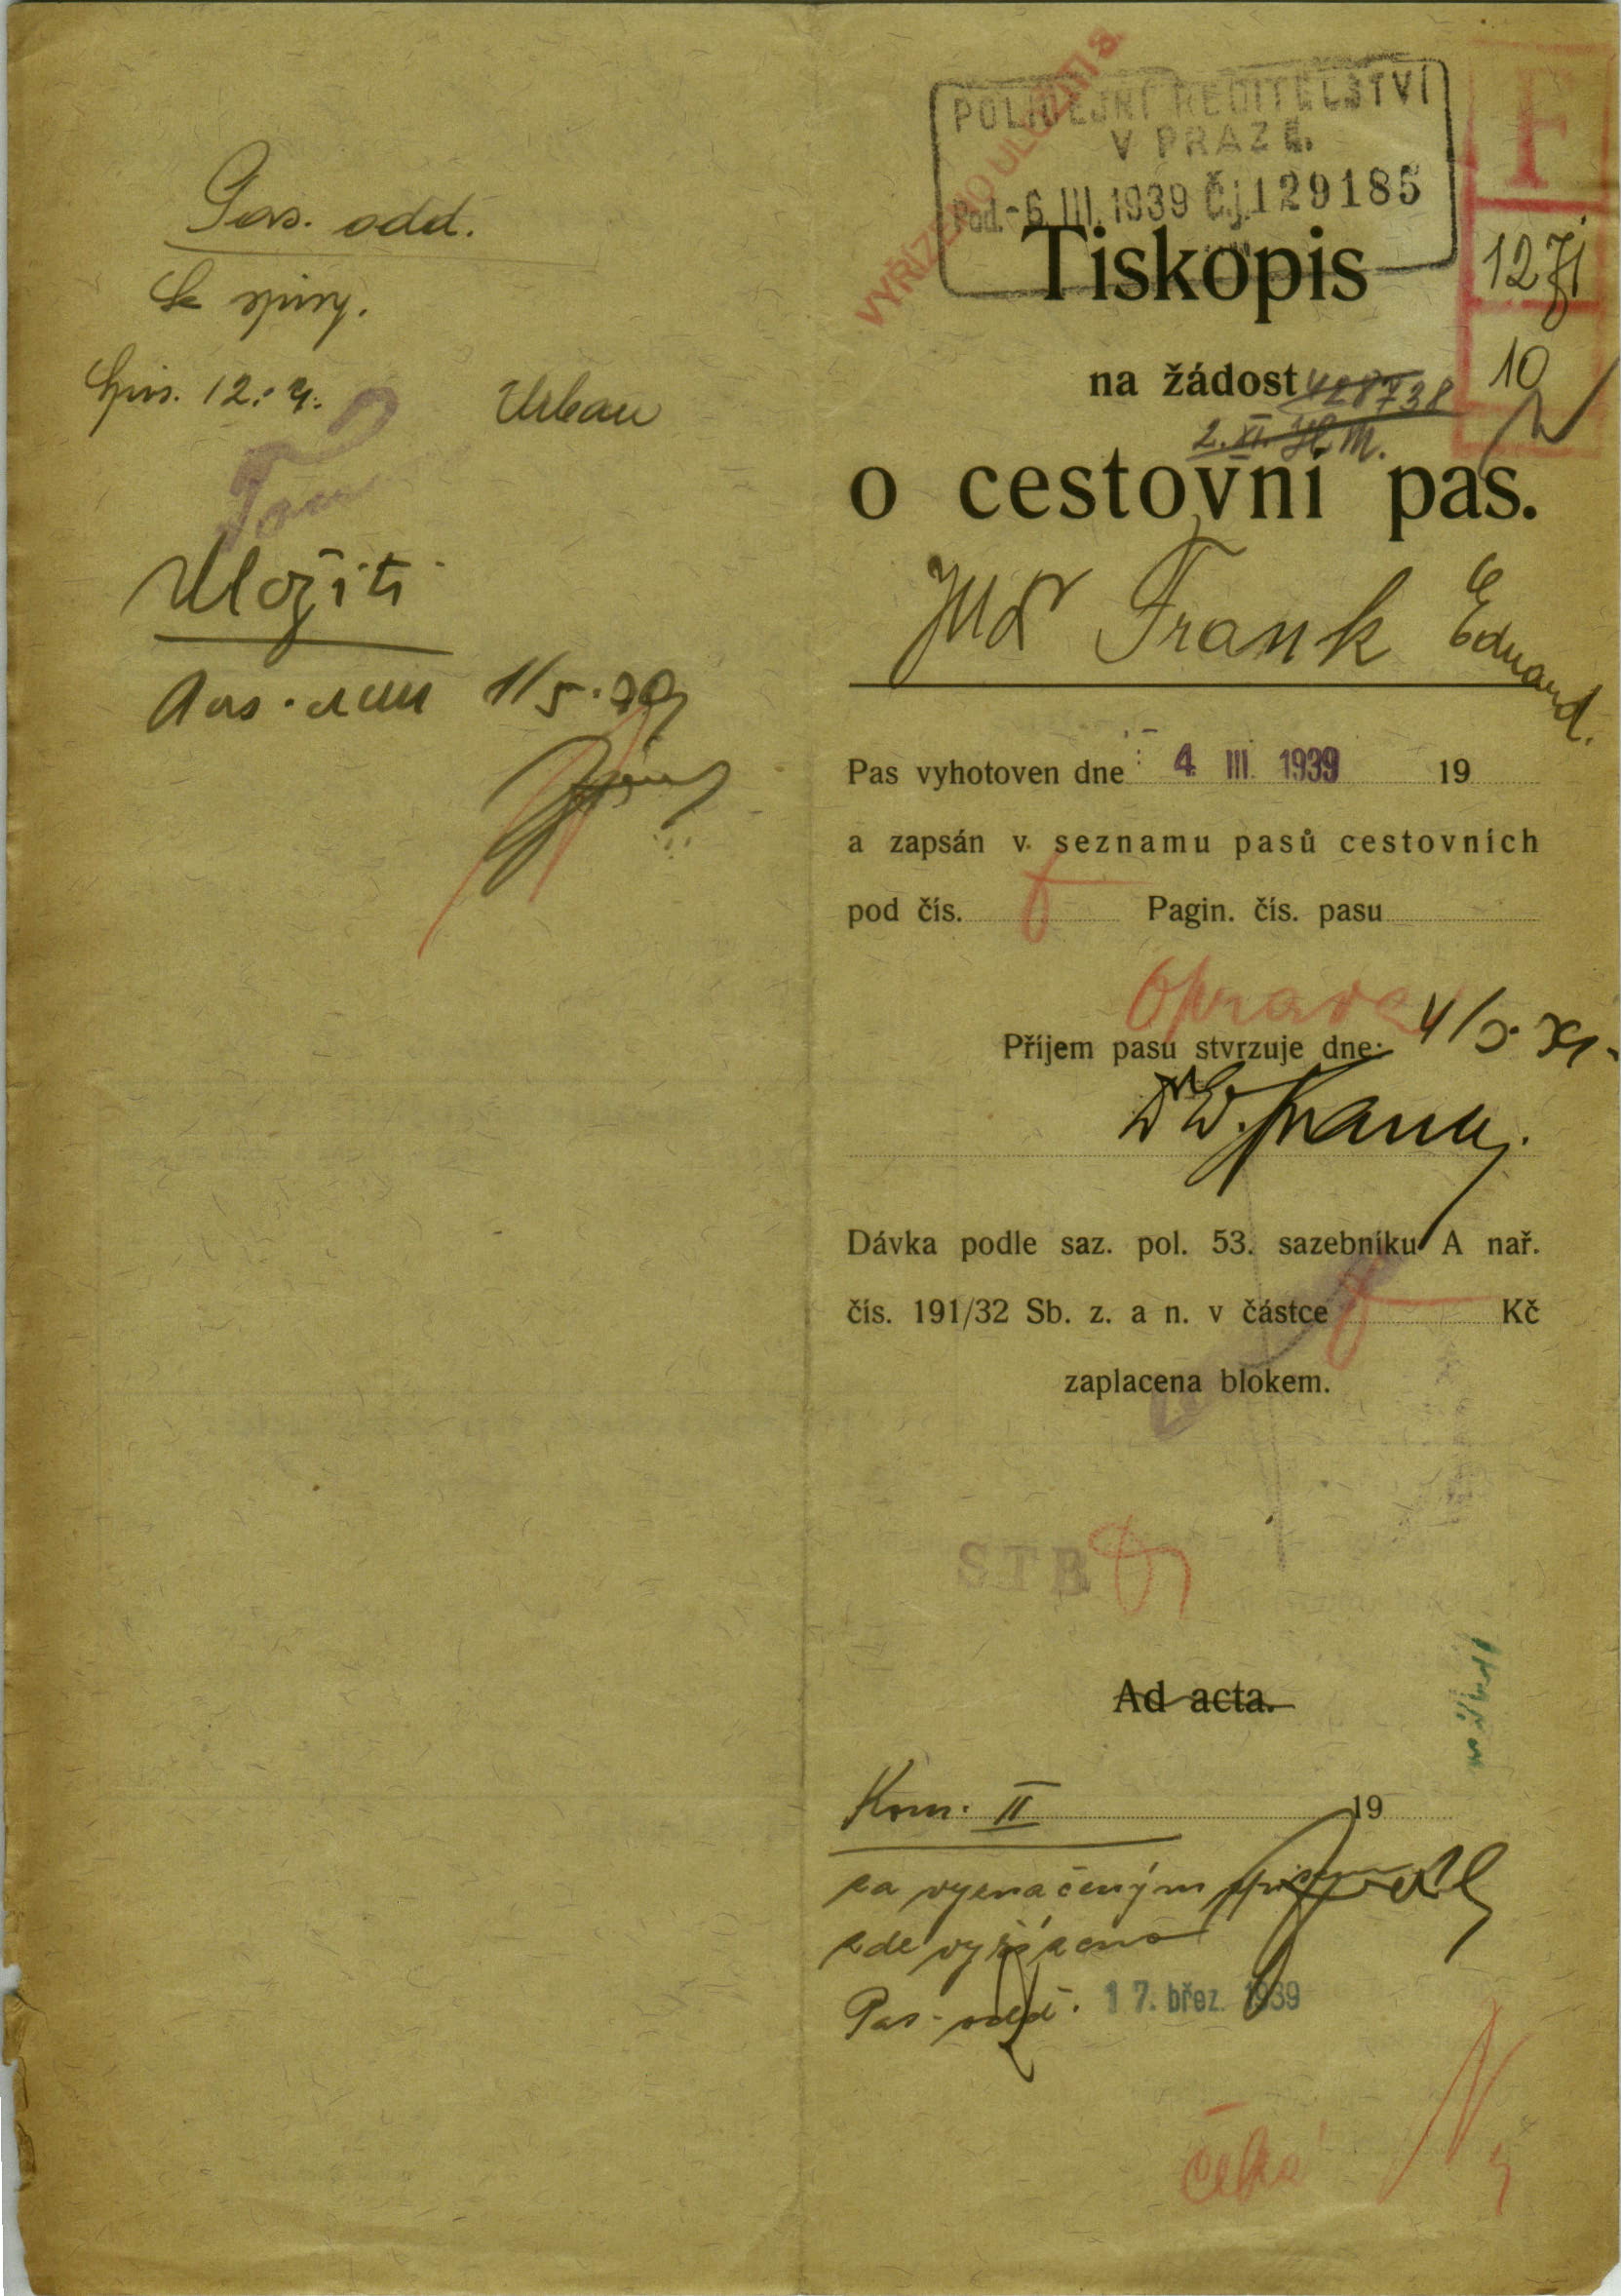 Pas. odd.
K spisy.
Spis. 12.
Urban
Uložiti
Pas. odd. 1/5.
POLICEJNÍ ŘEDITELSTVÍ
V PRAZE.
Pod. -6 III. 1939 Č.j. 129185
VYŘÍZENO ULOŽENÍ
F
12
10
Tiskopis
na žádost 428738
2. XI.
o cestovní pas.
JUDr Frank Eduard.
Pas vyhotoven dne 4 III 1939 19
a zapsán v seznamu pasů cestovních
pod čís. Pagin. čís. pasu
Oprava
Příjem pasu stvrzuje dne:
Dr E. Frank.
Dávka podle saz. pol. 53. sazebníku A nař.
čís. 191/32 Sb. z. a n. v částce Kč
zaplacena blokem.
STB
Ad acta.
Kom. II 19
za vyznačeným
zde vyřízeno
Pas. odd. 17. břez. 1939